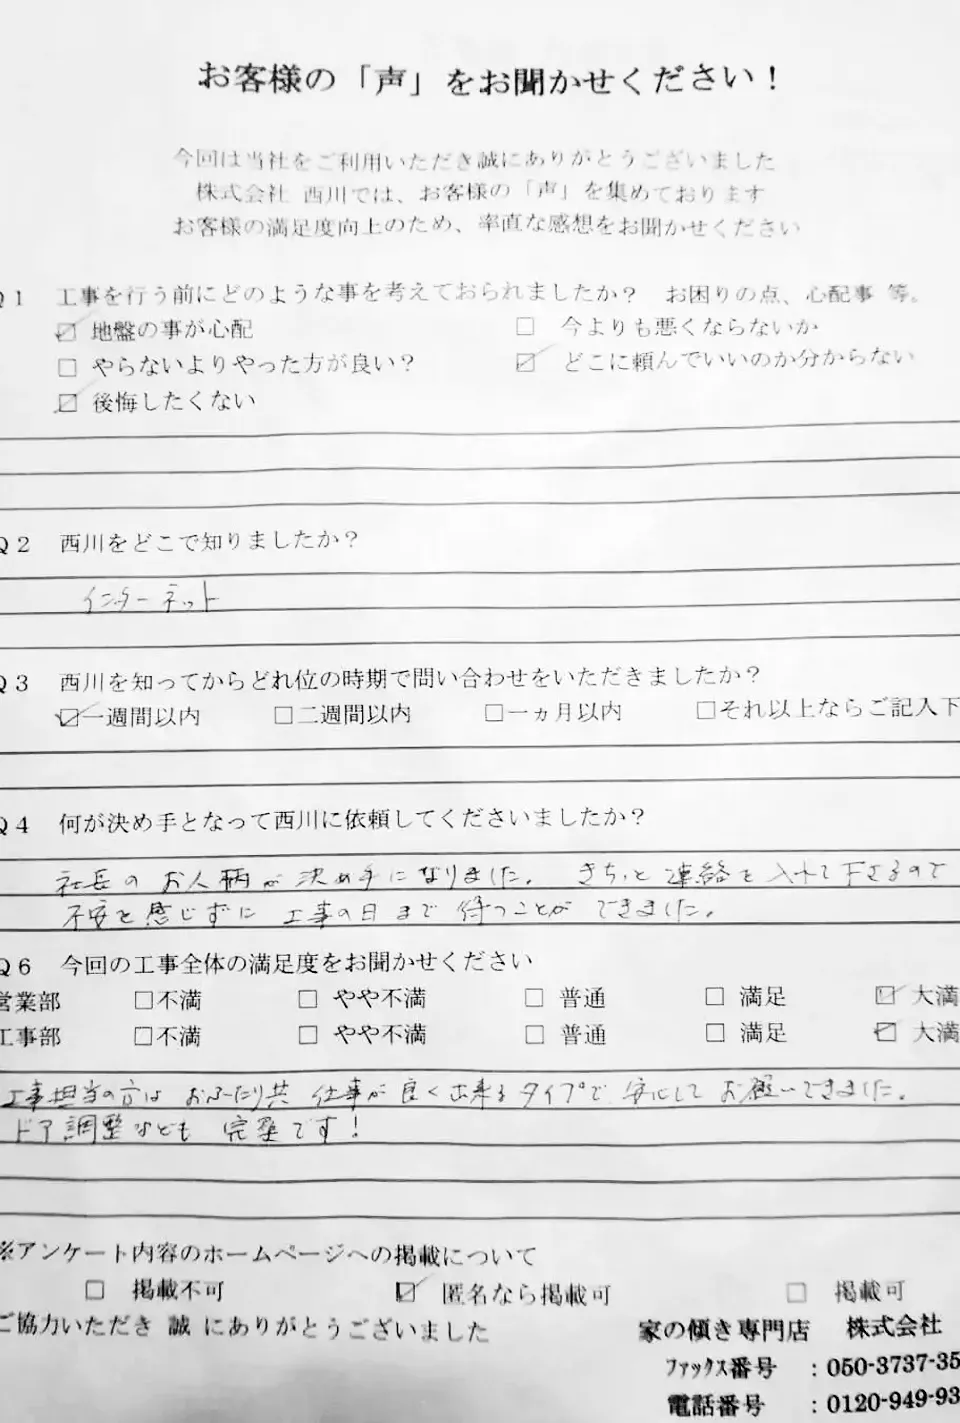 お客様の「声」をお聞かせください！
今回は当社をご利用いただき誠にありがとうございました
株式会社 西川では、お客様の「声」を集めております
お客様の満足度向上のため、率直な感想をお聞かせください
Q１ 工事を行う前にどのような事を考えておられましたか？ お困りの点、心配事 等。
☑ 地盤の事が心配 □ 今よりも悪くならないか
□ やらないよりやった方が良い？ ☑ どこに頼んでいいのか分からない
☑ 後悔したくない
Q２ 西川をどこで知りましたか？
インターネット
Q３ 西川を知ってからどれ位の時期で問い合わせをいただきましたか？
☑一週間以内 □二週間以内 □一ヵ月以内 □それ以上ならご記入下
Q４ 何が決め手となって西川に依頼してくださいましたか？
社長のお人柄が決め手になりました。きちっと連絡を入れて下さるので
不安を感じずに工事の日まで待つことができました。
Q６ 今回の工事全体の満足度をお聞かせください
営業部 □不満 □ やや不満 □ 普通 □ 満足 ☑ 大満
工事部 □不満 □ やや不満 □ 普通 □ 満足 ☑ 大満
工事担当の方はおふたり共仕事が良く出来るタイプで安心してお願いできました。
ドア調整なども完璧です！
※アンケート内容のホームページへの掲載について
□ 掲載不可 ☑ 匿名なら掲載可 □ 掲載可
ご協力いただき 誠 にありがとうございました
家の傾き専門店 株式会社
ﾌｧｯｸｽ番号 ：050-3737-35
電話番号 ：0120-949-93